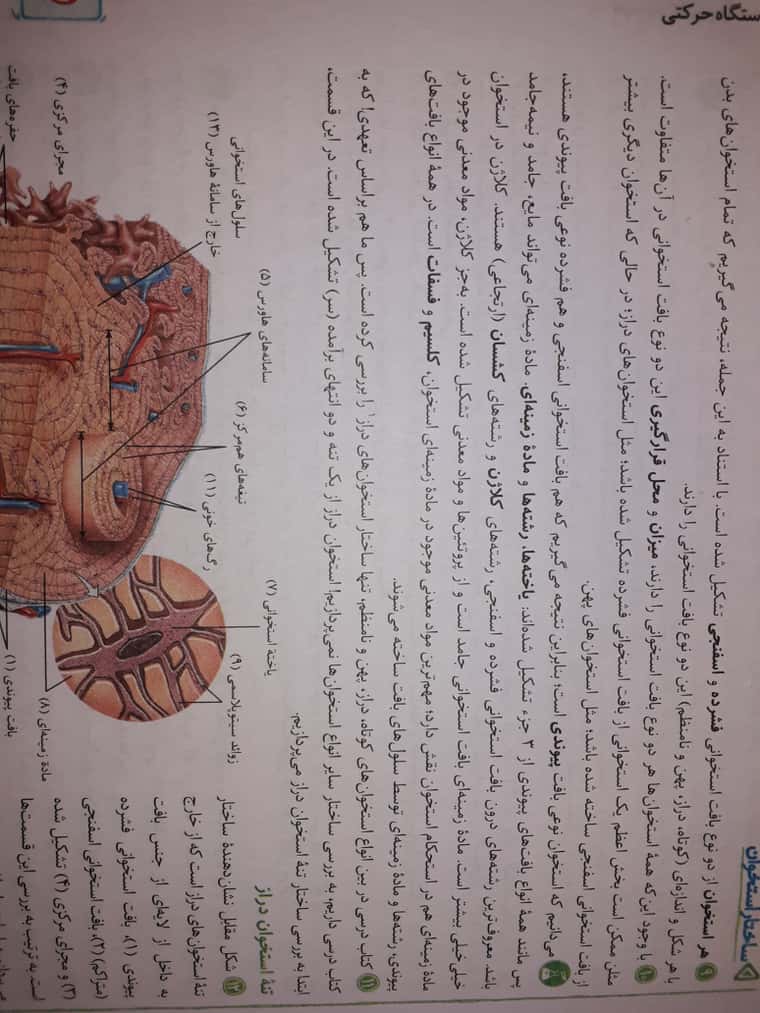 ستگاه حرکتی
ساختار استخوان
۹ هر استخوان از دو نوع بافت استخوانی فشرده و اسفنجی تشکیل شده است. با استناد به این جمله، نتیجه می‌گیریم که تمام استخوان‌های بدن
با هر شکل و اندازه‌ای (کوتاه، دراز، پهن و نامنظم) این دو نوع بافت استخوانی را دارند.
۱۰ با وجود این‌که همهٔ استخوان‌ها هر دو نوع بافت استخوانی را دارند، میزان و محل قرارگیری این دو نوع بافت استخوانی در آن‌ها متفاوت است.
مثلن ممکن است بخش اعظم یک استخوانی از بافت استخوانی فشرده تشکیل شده باشد؛ مثل استخوان‌های دراز؛ در حالی که استخوان دیگری بیشتر
از بافت استخوانی اسفنجی ساخته شده باشد؛ مثل استخوان‌های پهن.
می‌دانیم که استخوان نوعی بافت پیوندی است؛ بنابراین نتیجه می‌گیریم که هم بافت استخوانی اسفنجی و هم فشرده نوعی بافت پیوندی هستند،
پس مانند همهٔ انواع بافت‌های پیوندی از ۳ جزء تشکیل شده‌اند: یاخته‌ها، رشته‌ها و مادهٔ زمینه‌ای. مادهٔ زمینه‌ای می‌تواند مایع، جامد و نیمه‌جامد
باشد. معروف‌ترین رشته‌های درون بافت استخوانی فشرده و اسفنجی، رشته‌های کلاژن و رشته‌های کشسان (ارتجاعی) هستند. کلاژن در استخوان
خیلی خیلی بیشتر است. مادهٔ زمینه‌ای بافت استخوانی جامد است و از پروتئین‌ها و مواد معدنی تشکیل شده است. به‌جز کلاژن، مواد معدنی موجود در
مادهٔ زمینه‌ای هم در استحکام استخوان نقش دارد؛ مهم‌ترین مواد معدنی موجود در مادهٔ زمینه‌ای استخوان، کلسیم و فسفات است. در همهٔ انواع بافت‌های
پیوندی، رشته‌ها و مادهٔ زمینه‌ای توسط سلول‌های بافت ساخته می‌شوند.
۱۱ کتاب درسی در بین انواع استخوان‌های کوتاه، دراز، پهن و نامنظم، تنها ساختار استخوان‌های دراز¹ را بررسی کرده است. پس ما هم براساس تعهدی! که به
کتاب درسی داریم، به بررسی ساختار سایر انواع استخوان‌ها نمی‌پردازیم! استخوان دراز از یک تنه و دو انتهای برآمده (سر) تشکیل شده است. در این قسمت،
ابتدا به بررسی ساختار تنهٔ استخوان دراز می‌پردازیم.
تنهٔ استخوان دراز
۱۲ شکل مقابل نشان‌دهندهٔ ساختار
تنهٔ استخوان‌های دراز است که از خارج
به داخل از لایه‌ای از جنس بافت
پیوندی (۱)، بافت استخوانی فشرده
(متراکم) (۲)، بافت استخوانی اسفنجی
(۳) و مجرای مرکزی (۴) تشکیل شده
است. به ترتیب به بررسی این قسمت‌ها
یاختهٔ استخوانی (۷)
زوائد سیتوپلاسمی (۹)
سامانه‌های هاورس (۵)
تیغه‌های هم‌مرکز (۶)
رگ‌های خونی (۱۱)
سلول‌های استخوانی
خارج از سامانهٔ هاورس (۱۳)
مجرای مرکزی (۴)
حفره‌های بافت
مادهٔ زمینه‌ای (۸)
بافت پیوندی (۱)